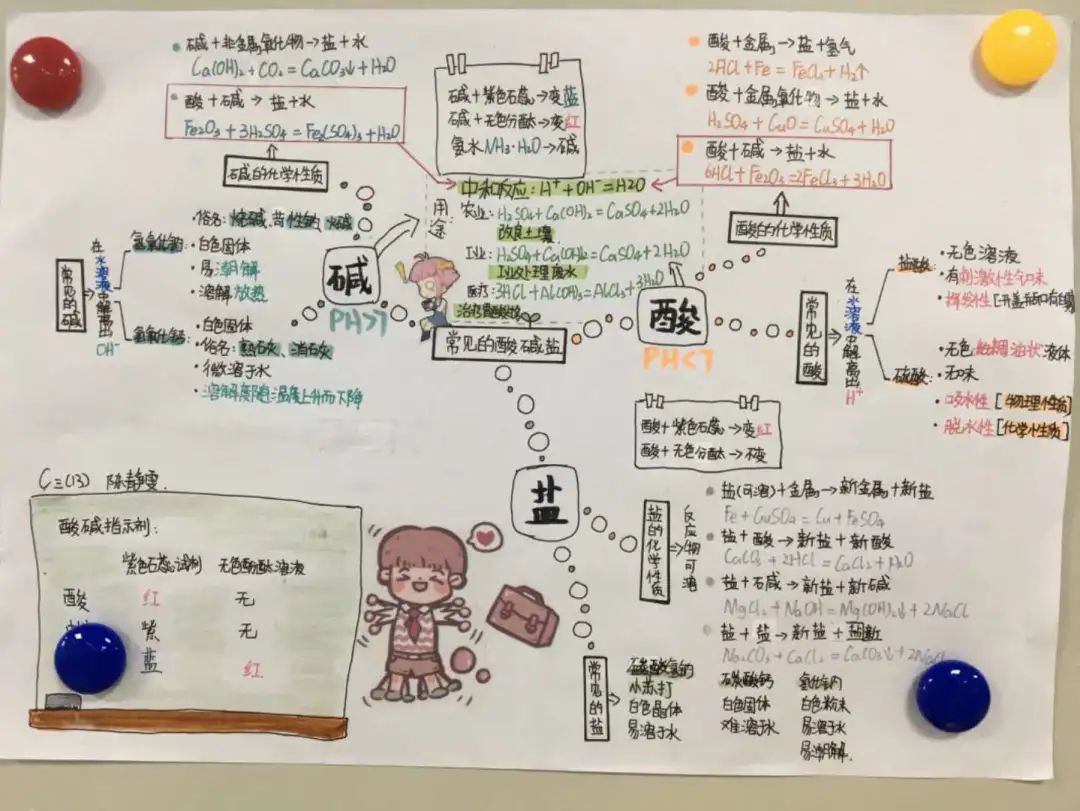 碱+非金属氧化物→盐+水
Ca(OH)₂+CO₂=CaCO₃↓+H₂O
酸+碱→盐+水
Fe₂O₃+3H₂SO₄=Fe₂(SO₄)₃+H₂O
碱的化学性质
碱+紫色石蕊→变蓝
碱+无色分酞→变红
氨水NH₃·H₂O→碱
酸+金属→盐+氢气
2HCl+Fe=FeCl₂+H₂↑
酸+金属氧化物→盐+水
H₂SO₄+CuO=CuSO₄+H₂O
酸+碱→盐+水
6HCl+Fe₂O₃=2FeCl₃+3H₂O
酸的化学性质
中和反应:H⁺+OH⁻=H₂O
用途:
农业:H₂SO₄+Ca(OH)₂=CaSO₄+2H₂O
改良土壤
工业:H₂SO₄+Ca(OH)₂=CaSO₄+2H₂O
工业处理废水
医疗:3HCl+Al(OH)₃=AlCl₃+3H₂O
碱
PH>7
常见的碱
在水溶液中解离出OH⁻
氢氧化钠
·俗名:烧碱、苛性钠、火碱
·白色固体
·易潮解
·溶解放热
氢氧化钙
·白色固体
·俗名:熟石灰、消石灰
·微溶于水
·溶解度随温度上升而下降
常见的酸碱盐
酸
PH<7
常见的酸
在水溶液中解离出H⁺
盐酸
·无色溶液
·有刺激性气味
·挥发性
硫酸
·无色粘稠油状液体
·无味
·吸水性[物理性质]
·脱水性[化学性质]
酸+紫色石蕊→变红
酸+无色分酞→不变
盐
盐的化学性质
反应物可溶
盐(可溶)+金属→新金属+新盐
Fe+CuSO₄=Cu+FeSO₄
盐+酸→新盐+新酸
盐+碱→新盐+新碱
MgCl₂+NaOH=Mg(OH)₂↓+2NaCl
盐+盐→新盐+新盐
Na₂CO₃+CaCl₂=CaCO₃↓+2NaCl
常见的盐
小苏打
白色晶体
易溶于水
碳酸钙
白色固体
难溶于水
氯化钠
白色粉末
易溶于水
易潮解
初三(13) 陈静雯
酸碱指示剂:
紫色石蕊试剂 无色酚酞溶液
酸 红 无
紫 无
蓝 红